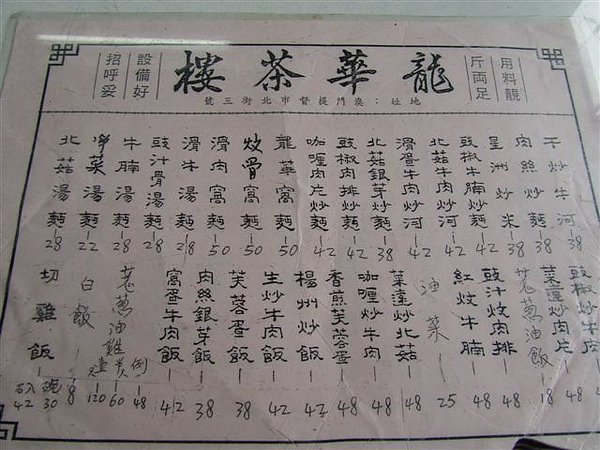 用料靚
斤両足
龍華茶樓
設備好
招呼妥
地址：澳門提督市北街三號
干炒牛河 38
肉絲炒麵 42
星洲炒米 38
豉椒牛腩炒麵 42
北菇牛肉炒河 42
滑蛋牛肉炒河 42
北菇銀芽炒麵 38
豉椒肉排炒麵 42
咖喱肉片炒麵 42
龍華窩麵 50
炆骨窩麵 50
滑肉窩麵 50
滑牛湯麵 28
豉汁骨湯麵 28
牛腩湯麵 28
學菜湯麵 22
北菇湯麵 28
豉椒炒牛 48
菜薳炒肉片 48
芫蔥油飯 18
豉汁炆肉排 48
紅炆牛腩 48
油菜 25
菜薳炒北菇 48
咖喱炒牛肉 48
香煎芙蓉蛋 48
楊州炒飯 42
生炒牛肉飯 42
芙蓉蛋飯 38
肉絲銀芽飯 38
窩蛋牛肉飯 42
芫蔥油雞 例 48 60 120
白飯 8
切雞飯 碗 30 42